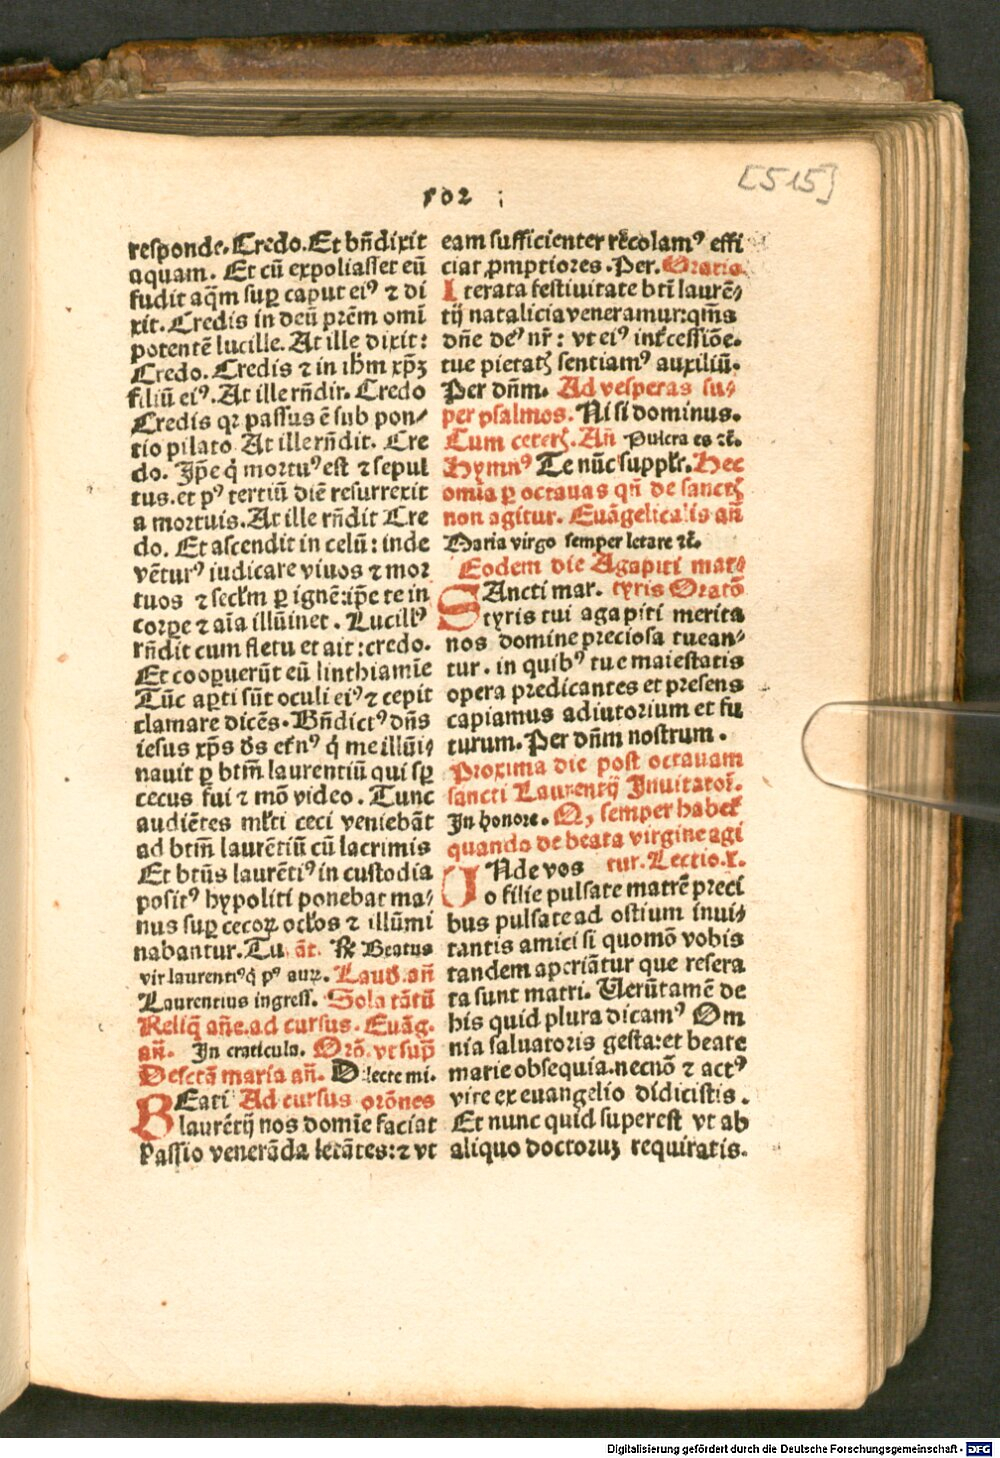 502
[515]
responde. Credo. Et bn̄dixit
aquam. Et cū expoliasset eū
fudit aq̄m sup caput ei⁹ ⁊ di
xit. Credis in deū prēm omi
potentē lucille. At ille dixit:
Credo. Credis ⁊ in ihm̄ xp̄ꝫ
filiū ei⁹. At ille rn̄dit. Credo
Credis qꝛ passus ē sub pon⸗
tio pilato At ille rn̄dit. Cre
do. Ip̄e q̇ mortu⁹ est ⁊ sepul
tus. et p⁹ tertiū diē resurrexit
a mortuis. At ille rn̄dit Cre
do. Et ascendit in celū: inde
vētur⁹ iudicare viuos ⁊ mor
tuos ⁊ secl̄m ꝑ ignē: ip̄e te in
corpe ⁊ aīa illūinet. Lucill⁹
rn̄dit cum fletu et ait: credo.
Et cooꝑuerūt eū linthiamīe
Tūc apti sūt oculi ei⁹ ⁊ cepit
clamare dicēs. Bn̄dict⁹ dn̄s
iesus xp̄s d̄s etn̄⁹ q̇ me illūi⸗
nauit ꝑ btm̄ laurentiū qui sp̄
cecus fui ⁊ mō video. Tunc
audiētes ml̄ti ceci veniebāt
ad btm̄ laurētiū cū lacrimis
Et btūs laurēti⁹ in custodia
posit⁹ hypoliti ponebat ma⸗
nus sup cecoꝝ ocl̄os ⁊ illūmi
nabantur. Tu āt. ℟ Beatus
vir laurenti⁹ q̇ p⁹ aux. Laud̄. an̄
Laurentius ingress. Sola tātū
Reliq̄ an̄e. ad cursus. Euāg.
an̄. In craticula. Orō. vt sup̄
De sctā maria an̄. Dilecte mi.
BEati Ad cursus orōnes
laurētij nos domīe faciat
passio venerāda letātes: ⁊ vt
eam sufficienter recolam⁹ effi
ciat ꝓmptiores. Per. Oratio.
Iterata festiuitate btī laurē⸗
tij natalicia veneramur: qm̄s
dn̄e de⁹ nr̄: vt ei⁹ int̄cessiōe.
tue pietatꝭ sentiam⁹ auxiliū.
Per dn̄m. Ad vesperas su⸗
per psalmos. Nisi dominus.
Cum ceterꝭ. An̄ Pulcra es ⁊c̄.
Hymn⁹ Te nūc suppl̄r. Hec
omīa ꝑ octauas qn̄ de sanctꝭ
non agitur. Euāgelicalis an̄
Maria virgo semper letare ⁊c̄.
Eodem die Agapiti mar⸗
SAncti mar. tyris Oratō
tyris tui agapiti merita
nos domine preciosa tuean⸗
tur. in quib⁹ tue maiestatis
opera predicantes et presens
capiamus adiutorium et fu
turum. Per dn̄m nostrum.
Proxima die post octauam
sancti Laurentij Inuitator̄.
In honore. ⁊ semper habet̄
quando de beata virgine agi
UNde vos tur. Lectio. x.
o filie pulsate matrē preci
bus pulsate ad ostium inui⸗
tantis amici si quomō vobis
tandem aperiātur que resera
ta sunt matri. Uerūtamē de
his quid plura dicam⁹ Om
nia saluatoris gesta: et beate
marie obsequia. necnō ⁊ act⁹
vite ex euangelio didicistis.
Et nunc quid superest vt ab
aliquo doctoruꝫ requiratis.
Digitalisierung gefördert durch die Deutsche Forschungsgemeinschaft - DFG